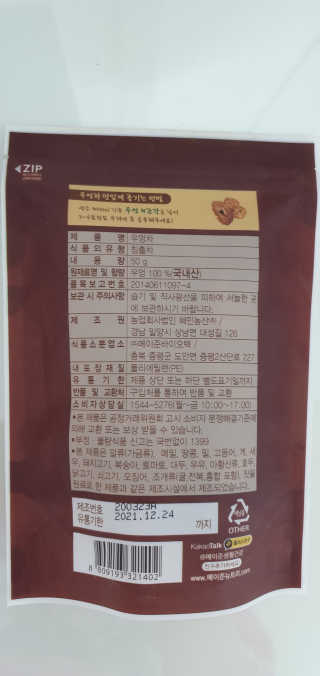 ZIP
우엉차 맛있게 즐기는 방법
제 품 명 우엉차
식품의유형 침출차
내 용 량 50 g
원재료명 및 함량 우엉 100 %(국내산)
품목보고번호 20140611097-4
보관 시 주의사항 습기 및 직사광선을 피하여 서늘한 곳
에 보관하시기 바랍니다.
제 조 원 농업회사법인
경남 밀양시 상남면 대성길 126
식품소분업소 ㈜메이준바이오텍 /
충북 증평군 도안면 증평2산단로 227
내포장재질 폴리에틸렌(PE)
유 통 기 한 제품 상단 또는 하단 별도표기일까지
반품 및 교환처 구입처를 통하여 반품 및 교환
소비자상담실 1544-5276(월~금 10:00~17:00)
•본 제품은 공정거래위원회 고시 소비자 분쟁해결기준에
의해 교환 또는 보상 받을 수 있습니다.
•부정·불량식품 신고는 국번없이 1399
•본 제품은 알류(가금류), 메밀, 땅콩, 밀, 고등어, 게, 새
우, 돼지고기, 복숭아, 토마토, 대두, 우유, 아황산류, 호두,
닭고기, 쇠고기, 오징어, 조개류(굴,전복,홍합 포함), 잣을
원료로 한 제품과 같은 제조시설에서 제조되었습니다.
제조번호 200323A
유통기한 2021.12.24 까지
OTHER
KakaoTalk
@메이준생활건강
친구추가하세요
www.메이준뉴트리.com
8 809193 321402